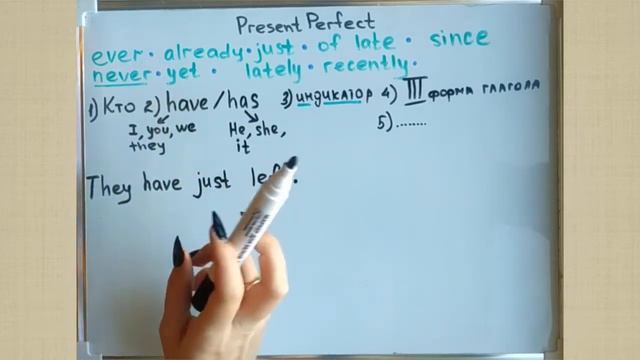 Present Perfect
ever · already · just · of late · since
never · yet · lately · recently ·
1) Кто 2) have/has 3) индикатор 4) III форма глагола
I, you, we He, she, 5)........
they it
They have just